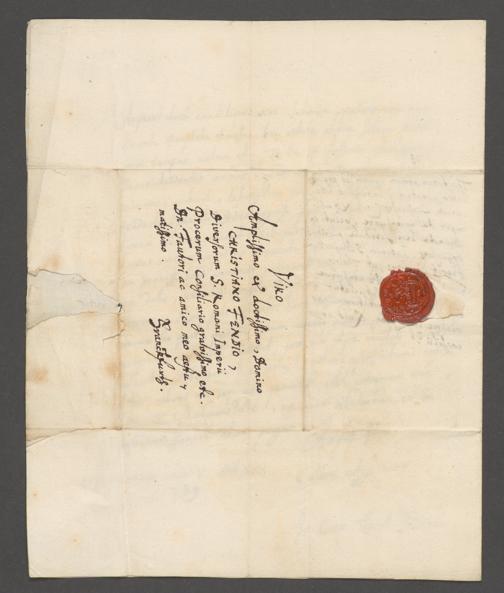 Viro
Amplissimo et doctissimo, Domino
CHRISTIANO FENDIO,
Diversorum S. Romani Imperii
Procerum Consiliario gravissimo etc.
Dn. Fautori ac amico meo
matissimo.
Franckfurtt.